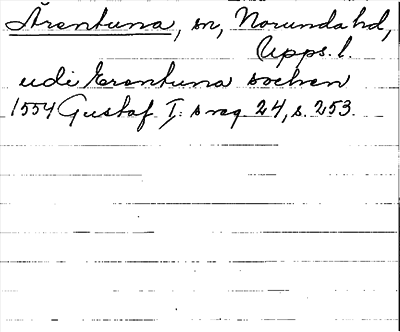 Ärentuna, sn, Norunda hd,
Upps. l.
udi Erentuna sochen
1554 Gustaf I:s reg 24, s. 253.